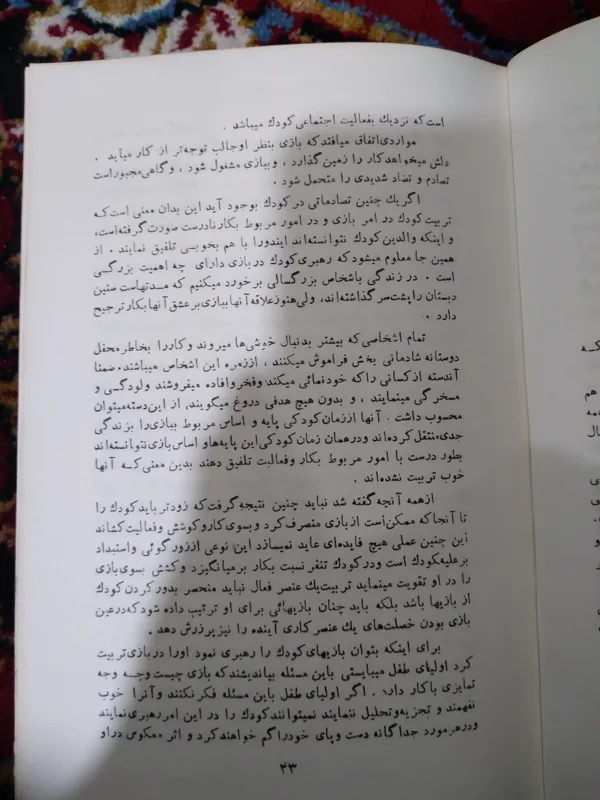 است که نزدیك بفعالیت اجتماعی کودك میباشد .
مواردی اتفاق میافتد که بازی بنظر او جالب توجه‌تر از کار میآید .
دلش میخواهد کار را زمین گذارد ، و ببازی مشغول شود ، و گاهی مجبور است
تصادم و تضاد شدیدی را متحمل شود .
اگر یك چنین تصادماتی در کودك بوجود آید این بدان معنی است که
تربیت کودك در امر بازی و در امور مربوط بکار نادرست صورت گرفته‌است،
و اینکه والدین کودك نتوانسته‌اند ایندو را با هم بخوبی تلفیق نمایند . از
همین جا معلوم میشود که رهبری کودك در بازی دارای چه اهمیت بزرگی
است . در زندگی با شخاص بزرگسالی برخورد میکنیم که مدتهاست سنین
دبستان را پشت سر گذاشته‌اند، ولی هنوز علاقه آنها ببازی بر عشق آنها بکار ترجیح
دارد .
تمام اشخاصی که بیشتر بدنبال خوشی‌ها میروند و کار را بخاطر محفل
دوستانه شادمانی بخش فراموش میکنند ، از زمره این اشخاص میباشند. ضمنا
آندسته از کسانی را که خودنمائی میکند و فخر و افاده میفروشند ولودگی و
مسخرگی مینمایند ، و بدون هیچ هدفی دروغ میگویند، از این دسته میتوان
محسوب داشت . آنها از زمان کودکی پایه و اساس مربوط ببازی را بزندگی
جدی، منتقل کرده‌اند و در همان زمان کودکی این پایه‌ها و اساس بازی نتوانسته‌اند
بطور درست با امور مربوط بکار و فعالیت تلفیق دهند بدین معنی که آنها
خوب تربیت نشده‌اند .
از همه آنچه گفته شد نباید چنین نتیجه گرفت که زودتر باید کودك را
تا آنجا که ممکن است از بازی منصرف کرد و بسوی کار و کوشش و فعالیت کشاند
این چنین عملی هیچ فایده‌ای عاید نمیسازد این نوعی از زورگوئی و استبداد
بر علیه کودك است و در کودك تنفر نسبت بکار برمیانگیزد و کشش بسوی بازی
را در او تقویت مینماید تربیت یك عنصر فعال نباید منحصر بدور کردن کودك
از بازیها باشد بلکه باید چنان بازیهائی برای او ترتیب داده شود که در عین
بازی بودن خصلت‌های یك عنصر کاری آینده را نیز پرورش دهد .
برای اینکه بتوان بازیهای کودك را رهبری نمود اورا در بازی تربیت
کرد اولیای طفل میبایستی باین مسئله بیاندیشند که بازی چیست وچه وجه
تمایزی با کار دارد . اگر اولیای طفل باین مسئله فکر نکنند و آنرا خوب
نفهمند و تجزیه و تحلیل ننمایند نمیتوانند کودك را در این امر رهبری نمایند
و در هر مورد جداگانه دست و پای خود را گم خواهند کرد و اثر معکوس در او
۴۳